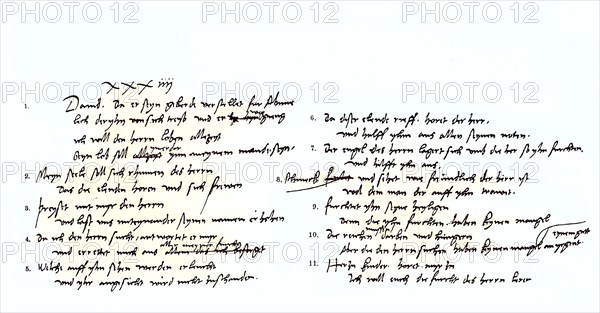 XXXiiii
1. Dauid. da er seyn geberde verstellet fur Abime
lech der yhn von sich treyb und er
ich will den herrn loben alle zeyt
Seyn lob soll ymer ynn meynem mund seyn.
2. Meyn seele soll sich rhumen des herrn
Das die elenden horen und sich frewen
3. Preyset mit myr den herrn
und last uns mit eynander seynen namen erhohen
4. Da ich den herrn sucht, antwortet er myr
und errettet mich aus
5. Wilche auff yhn sehen werden erleucht
und yhr angesicht wird nicht zuschanden.
6. Da diser elende rieff, horet der herr,
und halff yhm aus allen seynen noten.
7. Der engel des herrn lagert sich umb die her so yhn furchten
und hilfft yhn aus.
8. Schmeckt und sehet wie freundlich der herr ist
wol dem man der auff yhn trawet.
9. Furchtet yhn seyne heyligen
denn die yhn furchten, haben keynen mangel
10. Die reichen darben und hungern
Aber die den herrn suchen haben keynen mangel
11. Her zu kinder, horet myr zu
Ich will euch die furcht des herrn leren